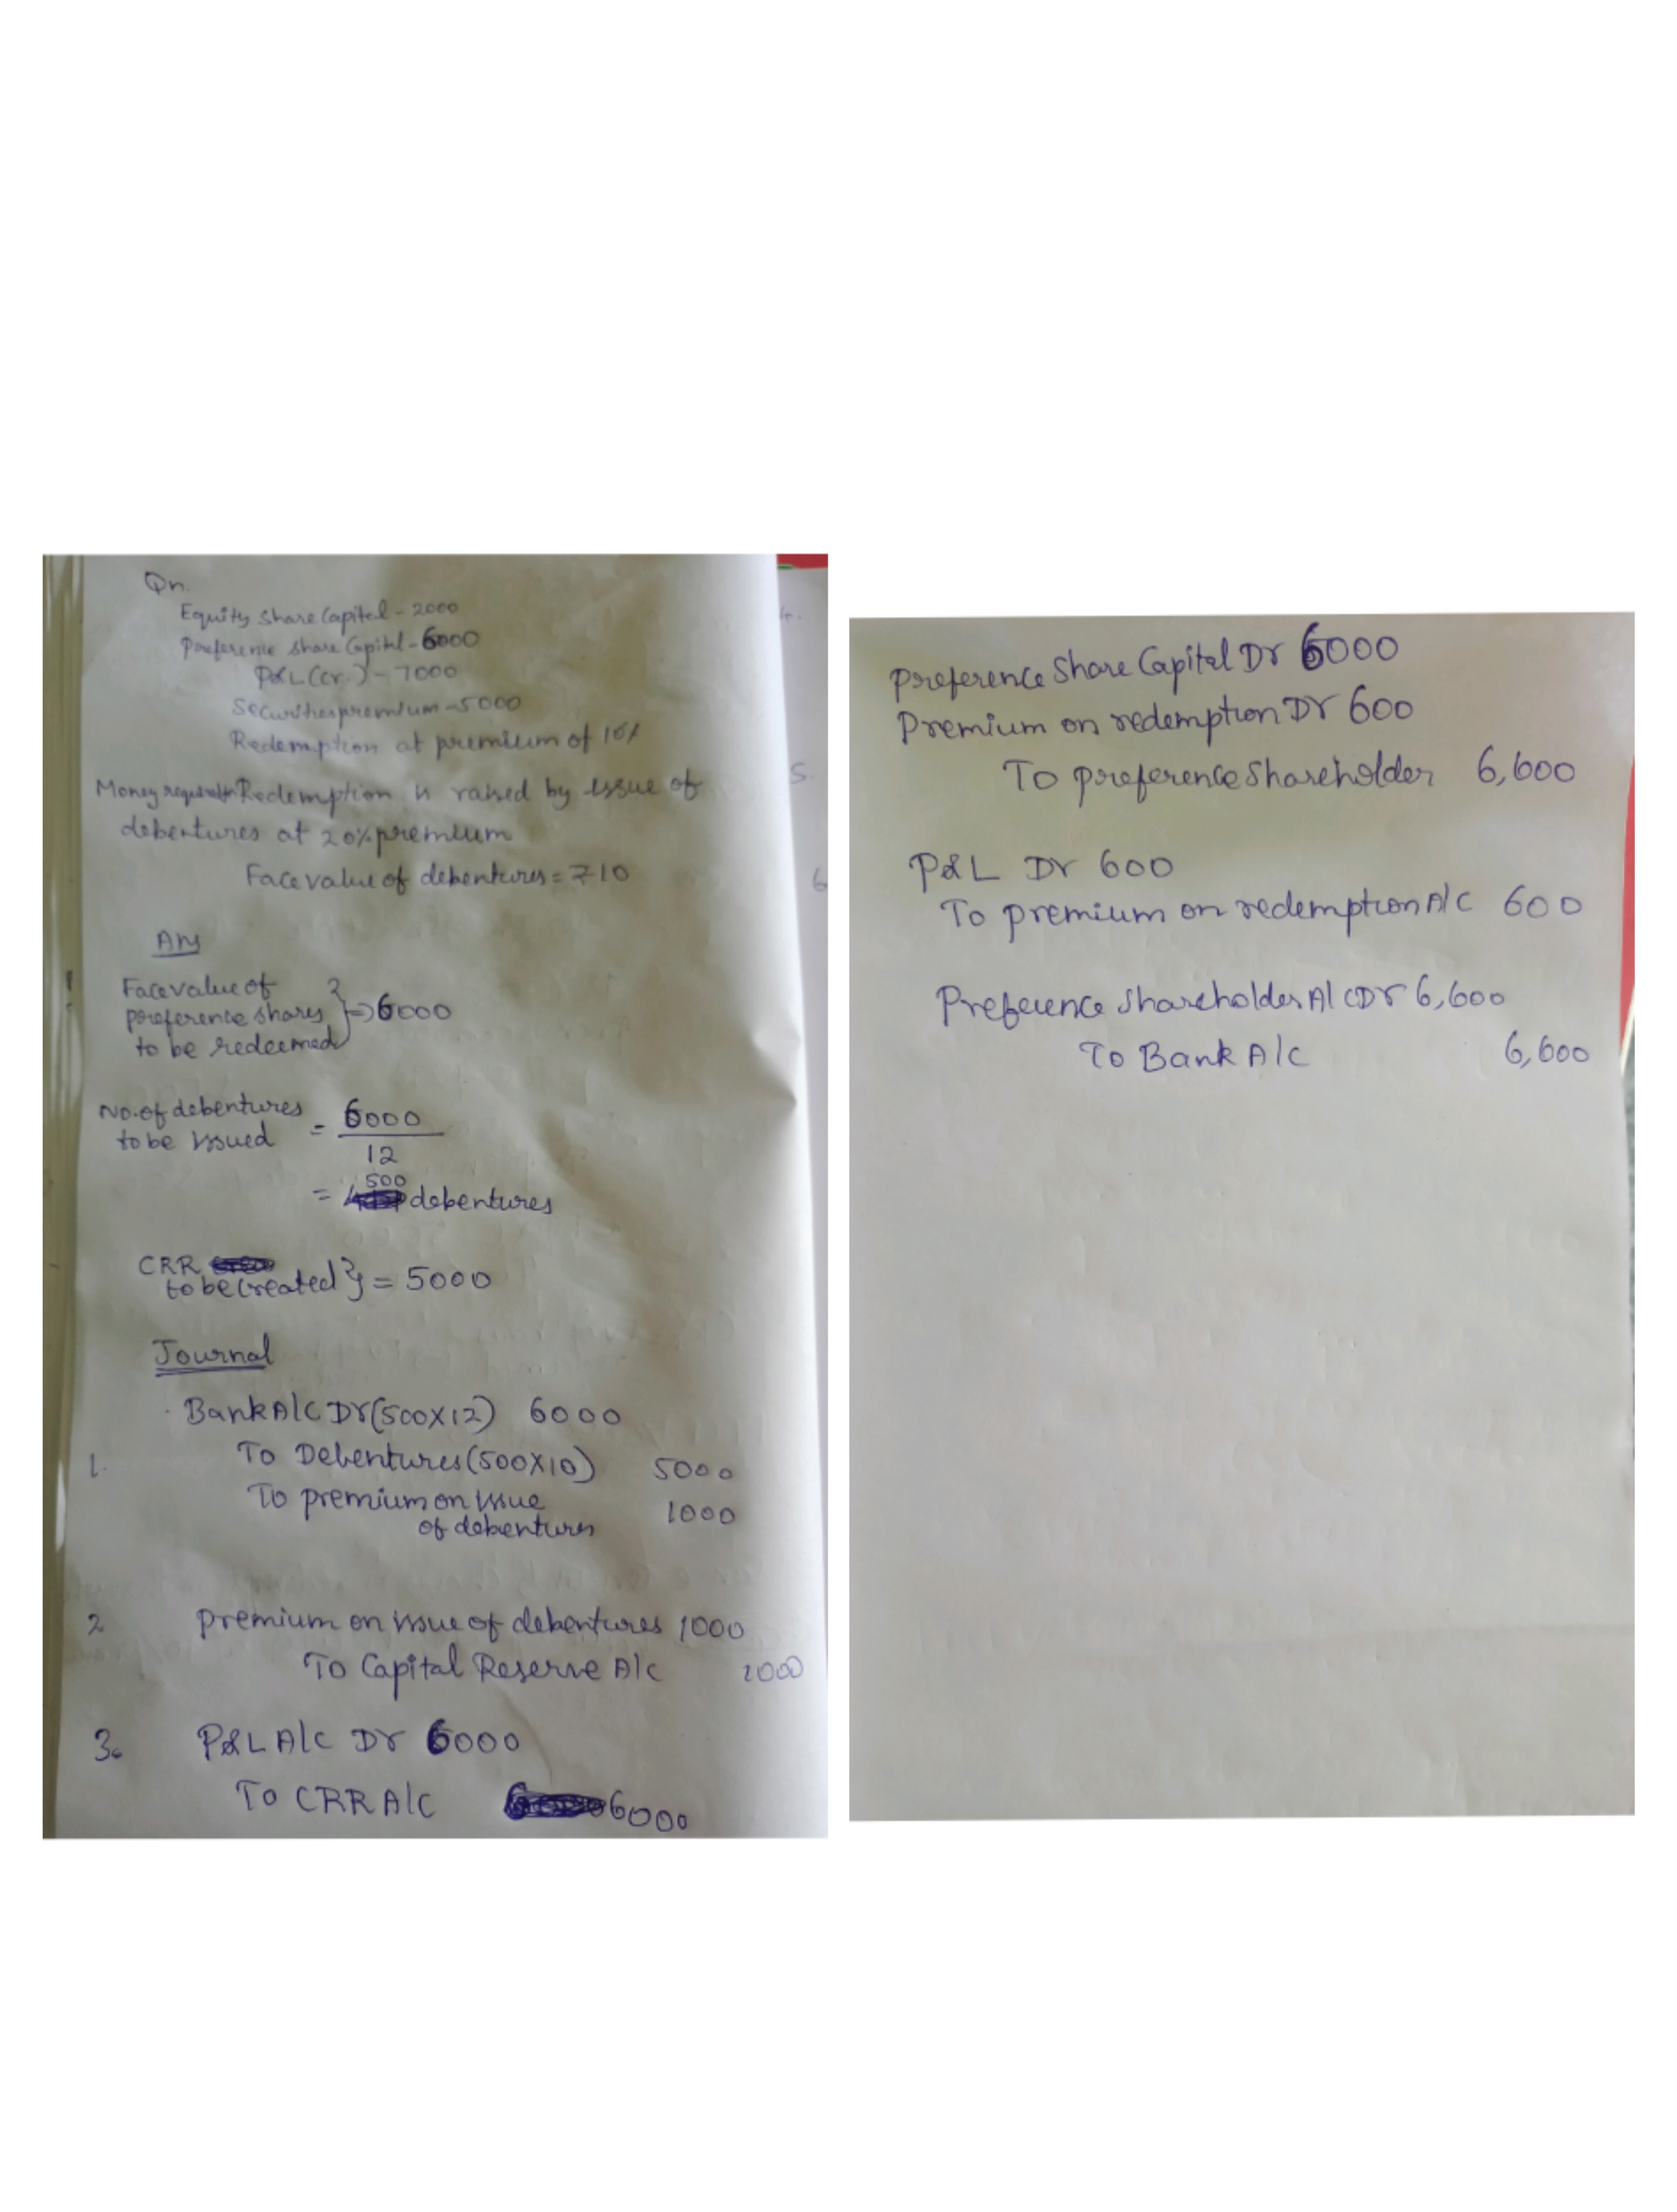 Qn.
Equity Share Capital - 2000
Preference Share Capital - 6000
P&L (cr.) - 7000
Securities premium - 5000
Redemption at premium of 10%
Money required for Redemption is raised by issue of
debentures at 20% premium
Face value of debentures = ₹10
Ans
Face value of
preference shares } => 6000
to be redeemed
No. of debentures
to be issued = 6000
12
500
= debentures
CRR
to be created } = 5000
Journal
Bank A/c Dr (500X12) 6000
1. To Debentures (500X10) 5000
To premium on issue
of debentures 1000
2 premium on issue of debentures 1000
To Capital Reserve A/c 1000
3. P&L A/c Dr 6000
To CRR A/c 6000
4.
5.
6
Preference Share Capital Dr 6000
Premium on redemption Dr 600
To preference Shareholder 6,600
P&L Dr 600
To premium on redemption A/c 600
Preference shareholder A/c Dr 6,600
To Bank A/c 6,600